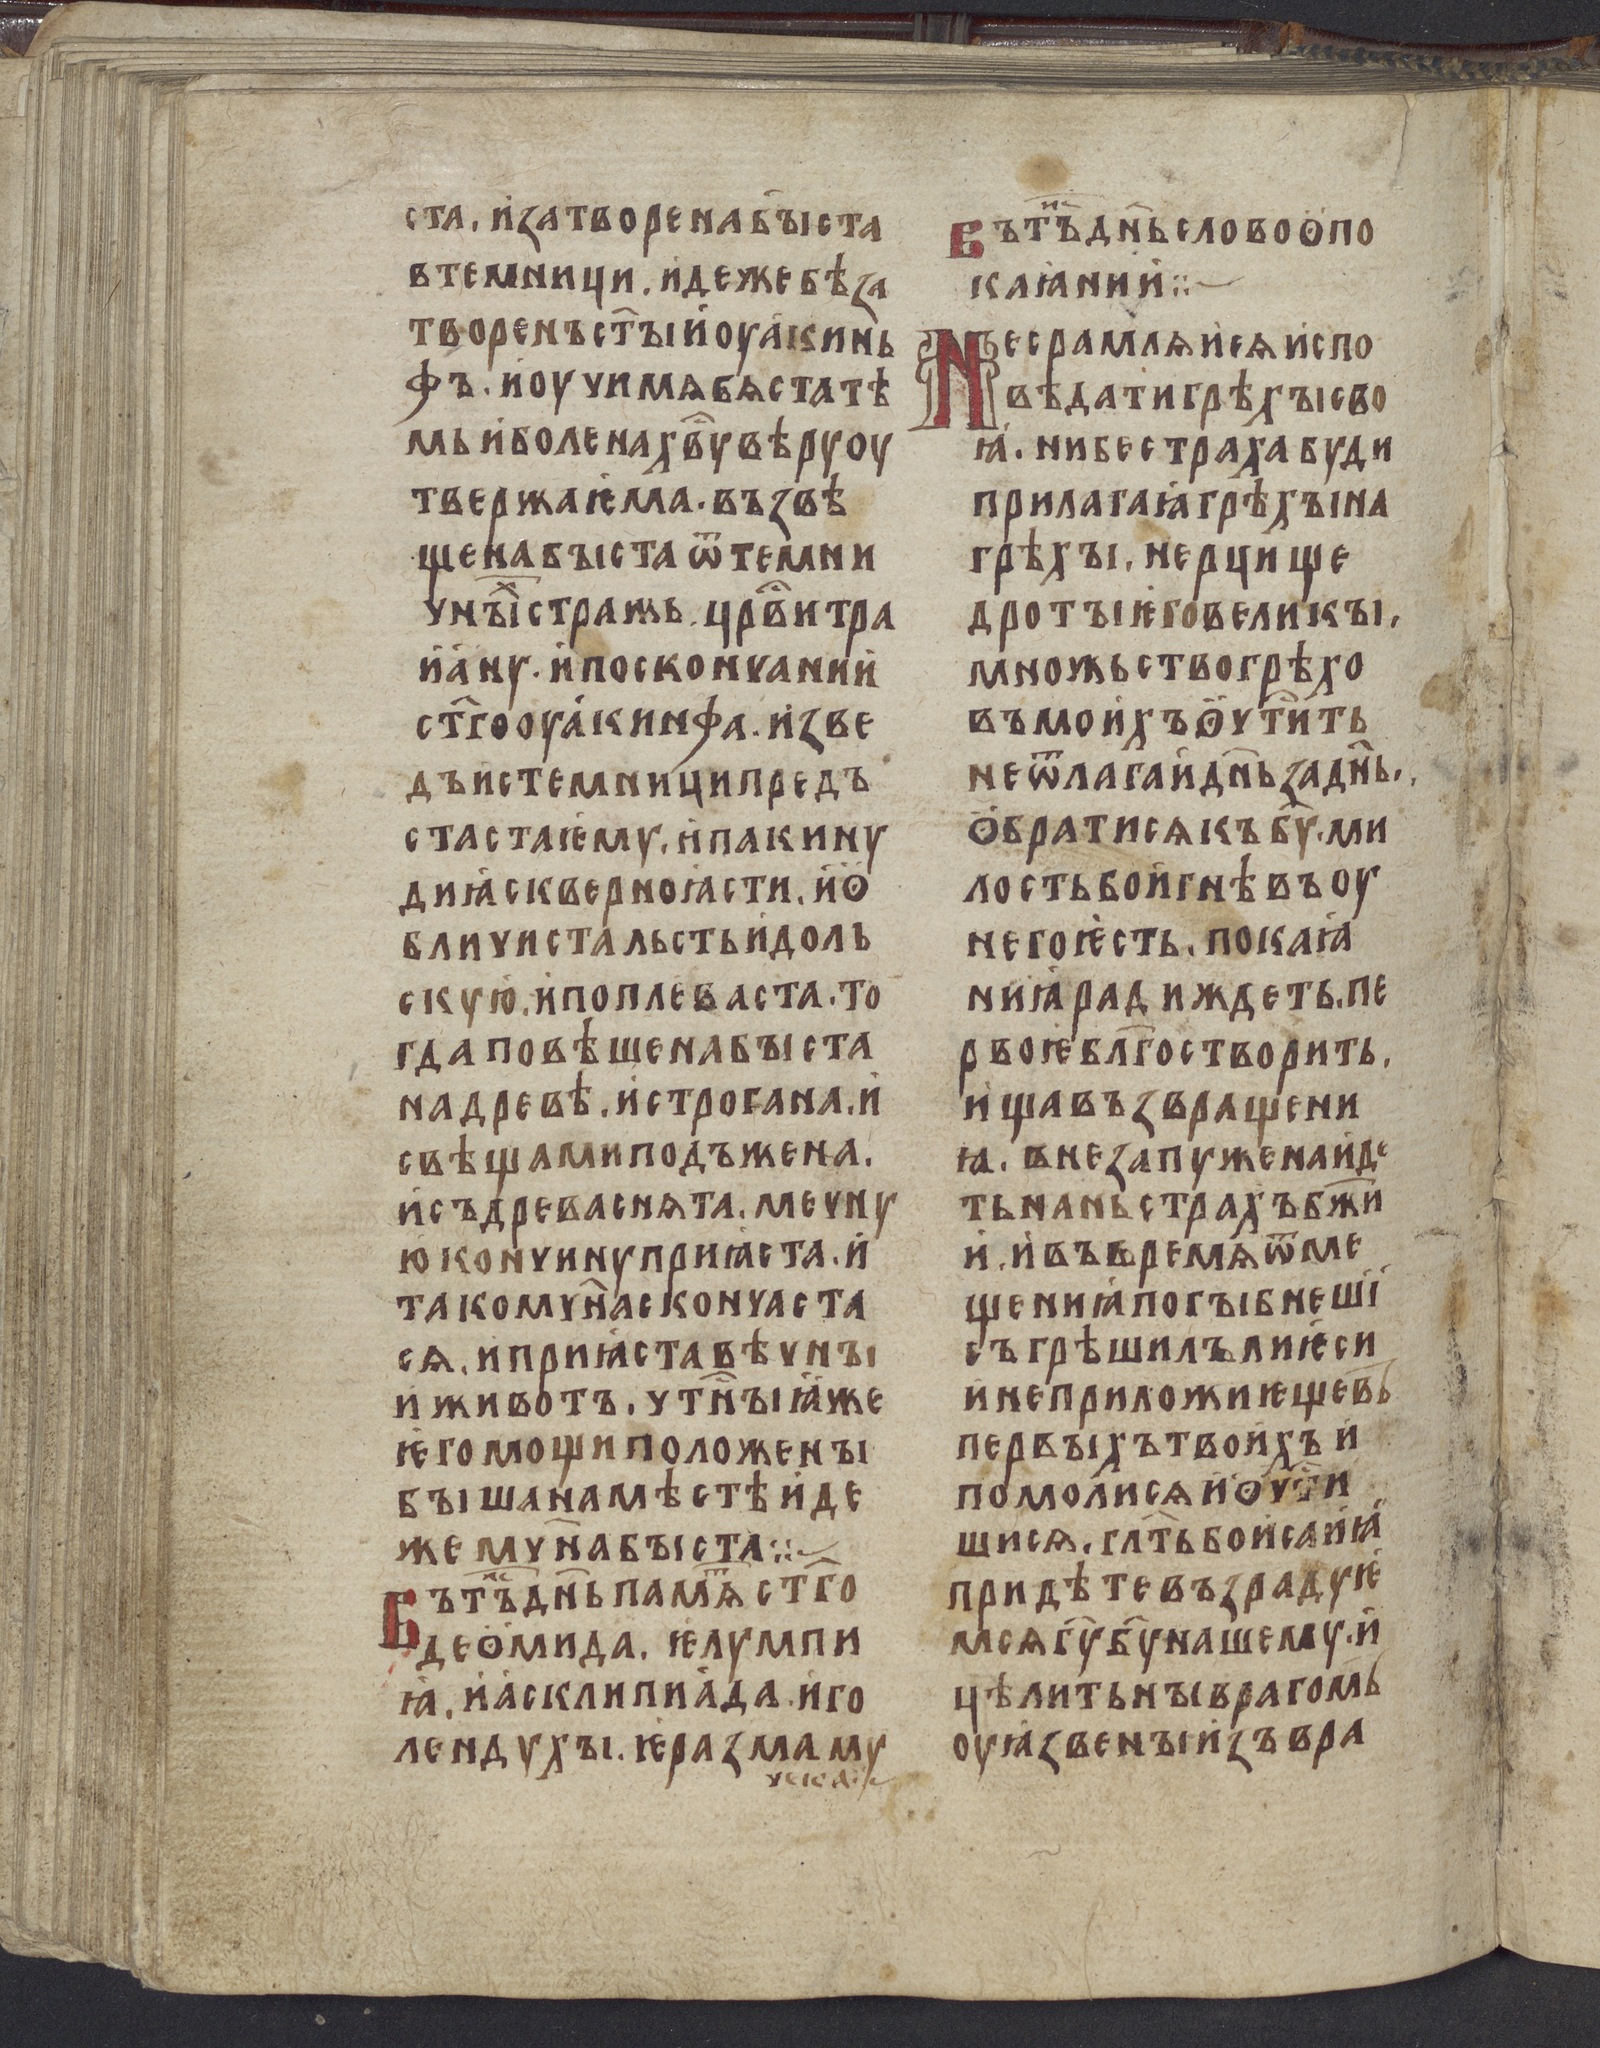 ста. и҆затворена бъıста
в темници. и҆деже бѣ за
творенъ ст҃ъıи оуа҆кинь
фъ. и҆ оучимѧ бѧста тѣ
мь и боле на хв҃у вѣру оу
твержаѥма. възвѣ
щена бъıста ѿ темни
чнъıⷯ стражь. црв҃и тра
и҆а҆ну. и҆ по сконча­нии
ст҃го оуа҆кинфа. и҆зве
дъ ис темници предъ
стаста ѥму. и҆ пакину
диꙗ скверно ꙗсти. и҆ ѻ҆
бличиста льсть и҆доль
скую. и҆ поплеваста. то
гда повѣшена бъıста
на древѣ. и҆ строгана. и҆
свѣщами подъжена.
и҆ съ древа снѧта. мечну
ю кончину приꙗста. и҆
тако мчн҃а сконча­ста
сѧ. и приꙗста вѣчнъı
и животъ. чтн҃ъıꙗ же
ѥго мощи положенъı
бъıша на мѣстѣ и҆де
же мчн҃а бъıста ⁘
Въ тъⷤ дн҃ь памѧⷮ ст҃го
деѻ҆мида. ѥлумпи
ꙗ. и҆ а҆склипиа҆да. и҆ го
лендухъı. ѥразма му
чека ⁘
Въ тъⷤ дн҃ь слово ѻ҆ по
каꙗнии ⁘
Не срамлѧи сѧ испо
вѣдати грѣхъı сво
ꙗ. ни бес траха буди
прилагаꙗ грѣхъı на
грѣхъı. не рци ще
дротъı ѥго великъı.
множьство грѣхо
въ моихъ ѻ҆чт҃ить
не ѿлагаи дн҃ь за дн҃ь.
ѻ҆брати сѧ къ бу҃. ми
лость бо и гнѣвъ оу
него ѥсть. покаꙗ
ниꙗ ради ждеть. пе
рвоѥ блг҃о створить.
ища възвращени
ꙗ. внезапу же наиде
ть на нь страхъ бж҃и
и. и въ времѧ ѿме
щениꙗ погъıбнеши
съгрѣшилъ ли ѥси
и не приложи ѥще въ
первъıхъ твоихъ и
помолисѧ и ѻ҆чт҃и
шисѧ. глт҃ь бо исаиꙗ
придѣте възрадуѥ
мсѧ гу҃ бу҃ нашему. и
цѣлить нъı врагомь
оуꙗзвенъıи зъ вра